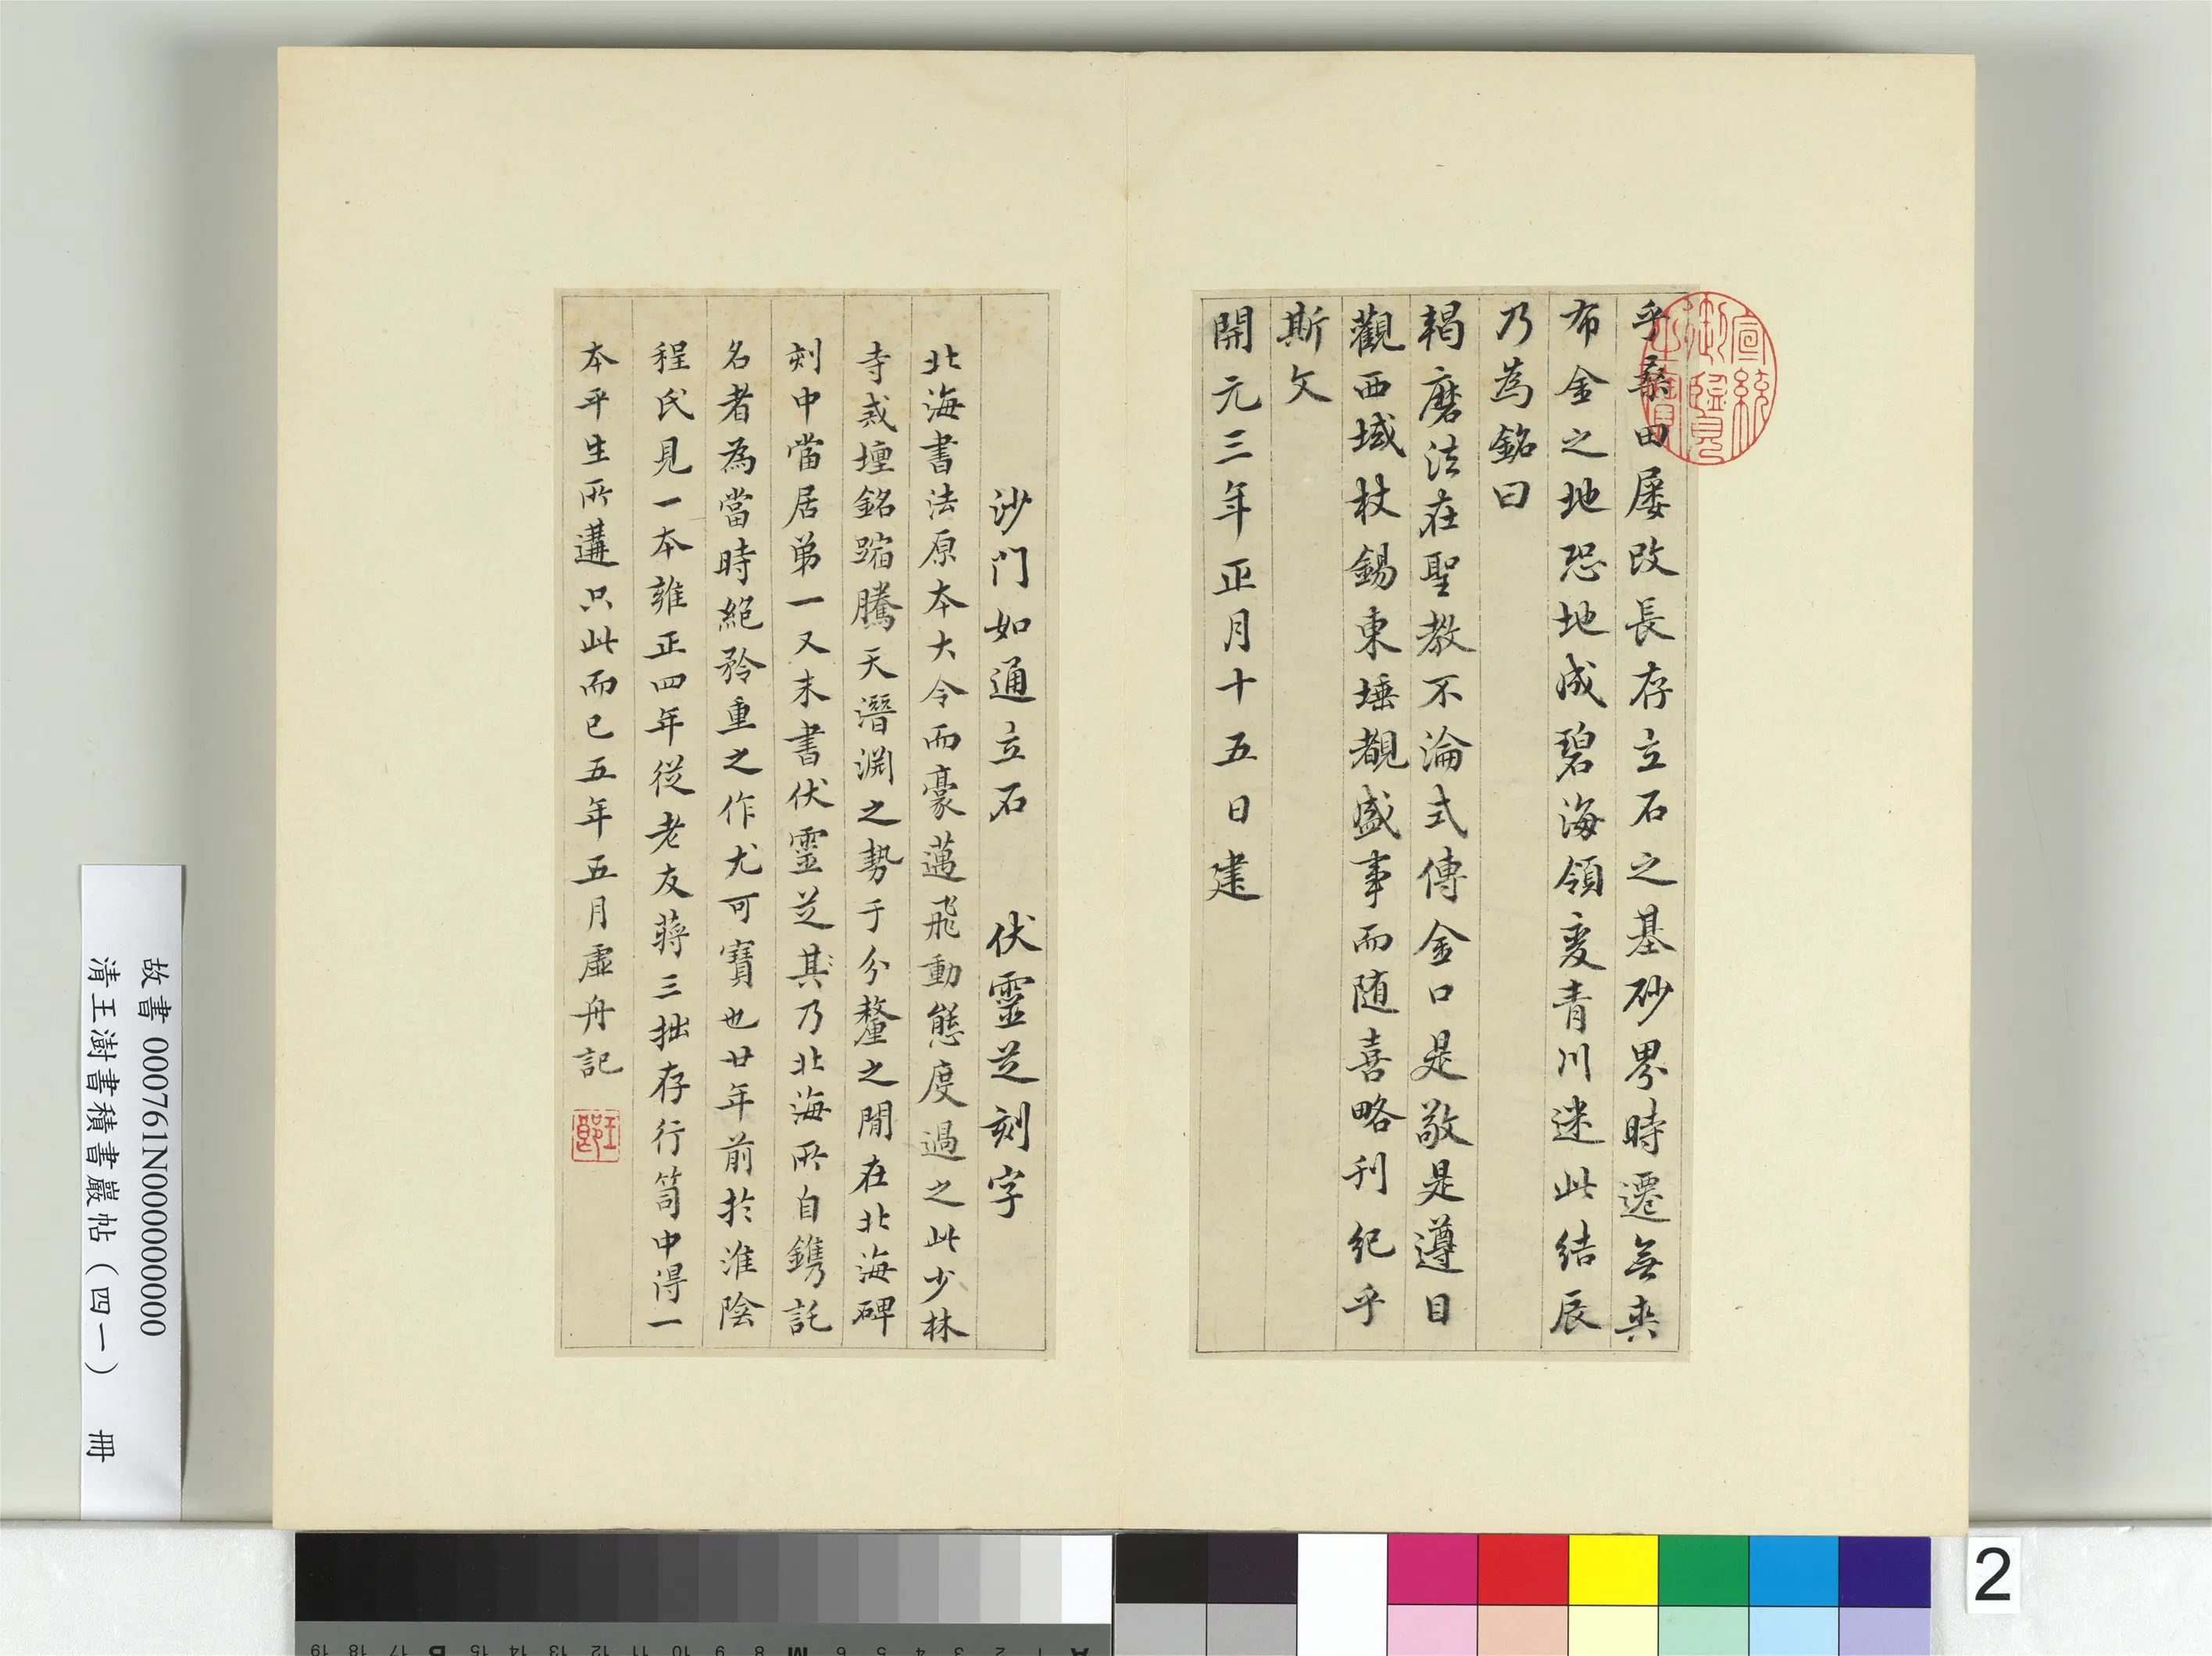 乎桑田屢改長存立石之基砂界時遷無爽
布金之地恐地成碧海領变青川迷此結辰
乃為銘曰
羯磨法在聖教不淪式傳金口是敬是遵目
觀西域杖錫東埵覩盛事而随喜略刊紀乎
斯文
開元三年正月十五日建
沙門如通立石 伏靈芝刻字
北海書法原本大令而豪邁飛動態度過之此少林
寺戒壇銘踰騰天潛淵之勢于分釐之間在北海碑
刻中當居弟一又末書伏靈芝其乃北海所自鐫託
名者為當時絕矜重之作尤可寶也廿年前於淮陰
程氏見一本雍正四年從老友蔣三拙存行笥中得一
本平生所遘只此而已五年五月虛舟記
故書 000761N000000000
清王澍書積書巖帖(四一) 冊
2
19 18 17 B 16 15 14 13 12 11 10 9 8 M 7 6 5 4 3 2 1 A